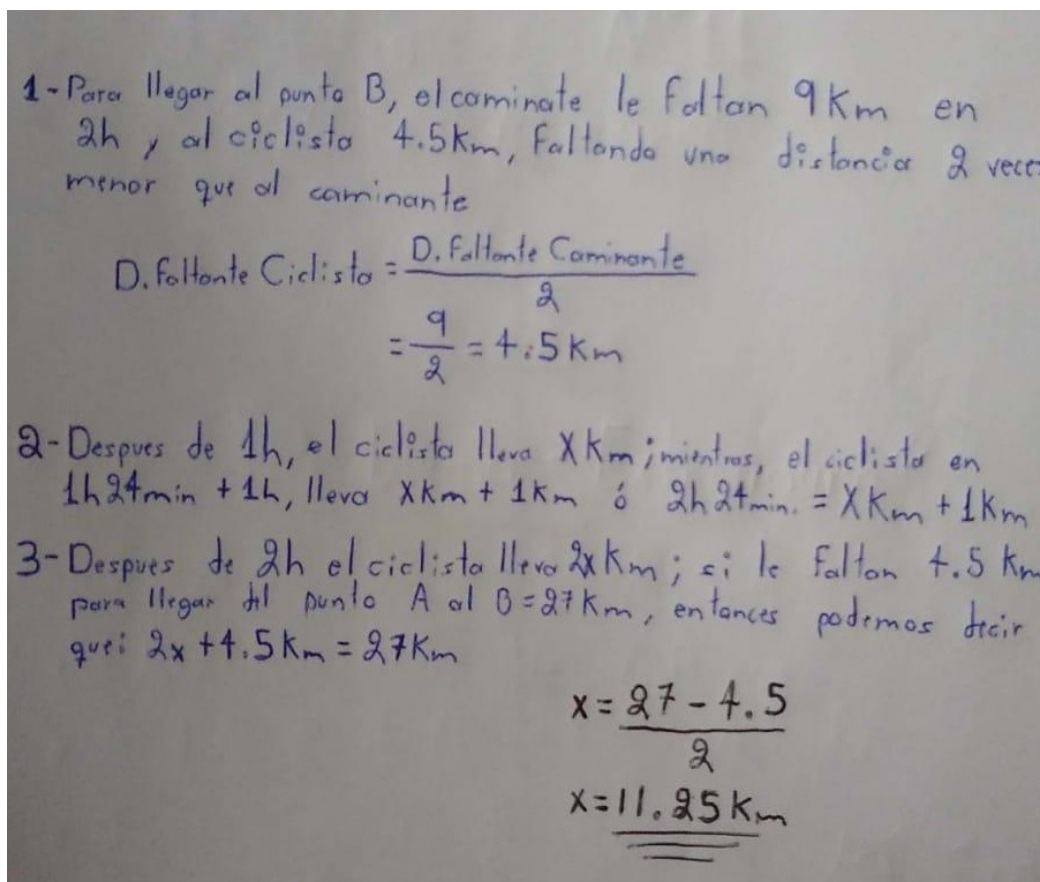 1-Para llegar al punto B, el caminate le faltan 9Km en
2h y al ciclista 4.5Km, faltando una distancia 2 veces
menor que al caminante
D. faltante Ciclista = D. faltante Caminante
2
= 9/2 = 4.5 Km
2-Despues de 1h, el ciclista lleva XKm; mientras, el ciclista en
1h24min + 1h, lleva XKm + 1Km ó 2h24min. = XKm + 1Km
3-Despues de 2h el ciclista lleva 2xKm; si le faltan 4.5 Km
para llegar del punto A al B = 27Km, entonces podemos decir
que: 2x + 4.5Km = 27Km
x = 27 - 4.5
2
x = 11.25 Km